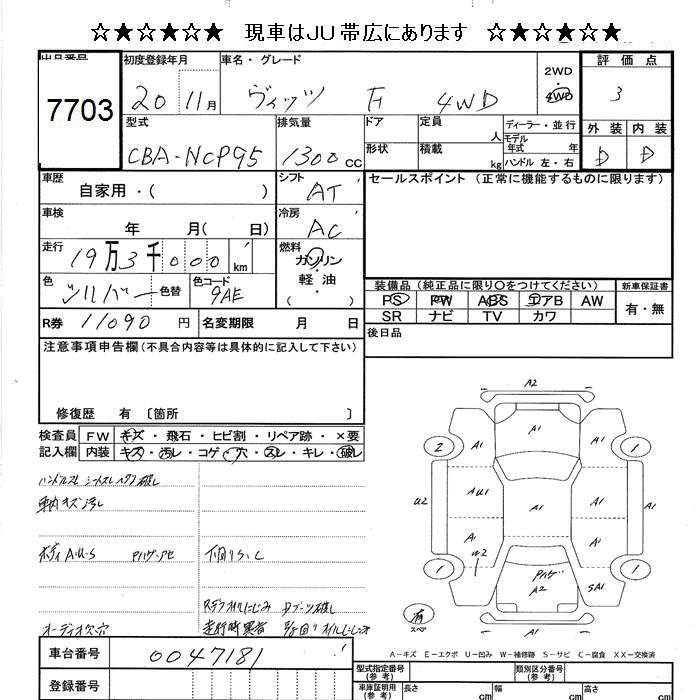 ☆★☆★☆★ 現車はJU帯広にあります ☆★☆★☆★
出品番号
7703
初度登録年月
20 11月
車名・グレード
ヴィッツ F 4WD
2WD
4WD
評価点
3
型式
CBA-NCP95
排気量
1300 CC
ドア
形状
定員
人
積載
kg
ディーラー・並行
モデル
年式 年
ハンドル 左・右
外装
内装
D
D
車歴
自家用・( )
シフト
AT
セールスポイント (正常に機能するものに限ります)
車検
年 月( 日)
冷房
AC
走行
19万3千000km
燃料
ガソリン
・
軽油
( )
色
シルバー
色替
色コード
9AE
装備品 (純正品に限り○をつけてください)
新車保証書
PS PW ABS エアB AW
SR ナビ TV カワ
有・無
R券 11090 円
名変期限 月 日
後日品
注意事項申告欄(不具合内容等は具体的に記入して下さい)
修復歴 有 〔箇所 〕
検査員
記入欄
FW キズ・飛石・ヒビ割・リペア跡・×要
内装 キズ・汚レ・コゲ・穴・スレ・キレ・破レ
車内キズ汚レ
ボディA・U・S
下回りS、C
オーディオ欠穴
A2
A1
2
A1
A1
1
U2
AU1
A1
A1
A1
U2
A1
1
1
A2
SA1
有
スペア
A1
A-キズ E-エクボ U-凹み W-補修跡 S-サビ C-腐食 XX-交換済
車台番号
0047181
登録番号
型式指定番号
(参考)
類別区分番号
(参考)
車庫証明用
(参考)
長さ
cm
幅
cm
高さ
cm